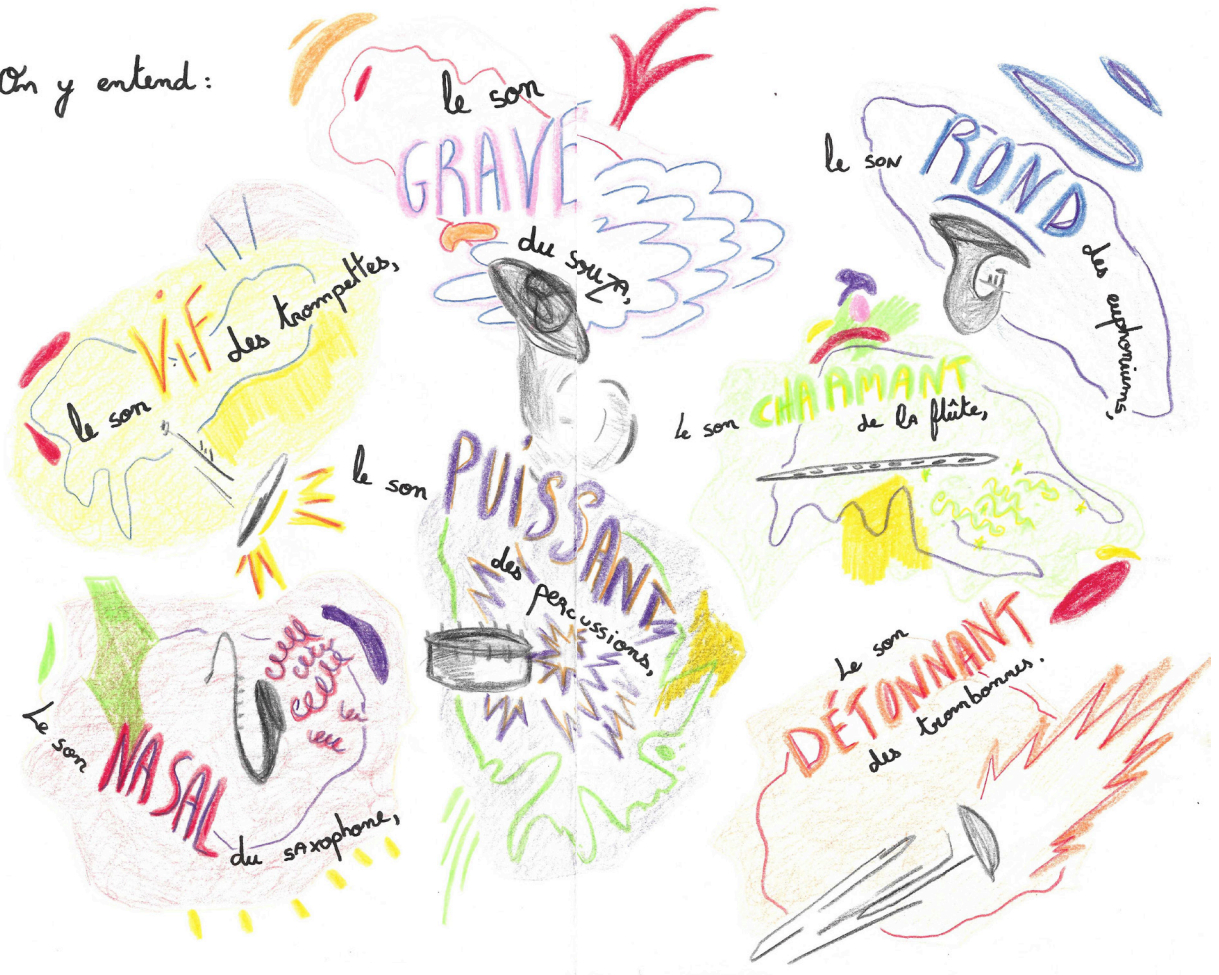 On y entend :
le son
GRAVE
du SOUZA,
le son
ROND
des euphoniums,
le son
VIF
des trompettes,
le son
CHARMANT
de la flûte,
le son
PUISSANT
des percussions,
Le son
NASAL
du saxophone,
Le son
DÉTONNANT
des trombonnes.